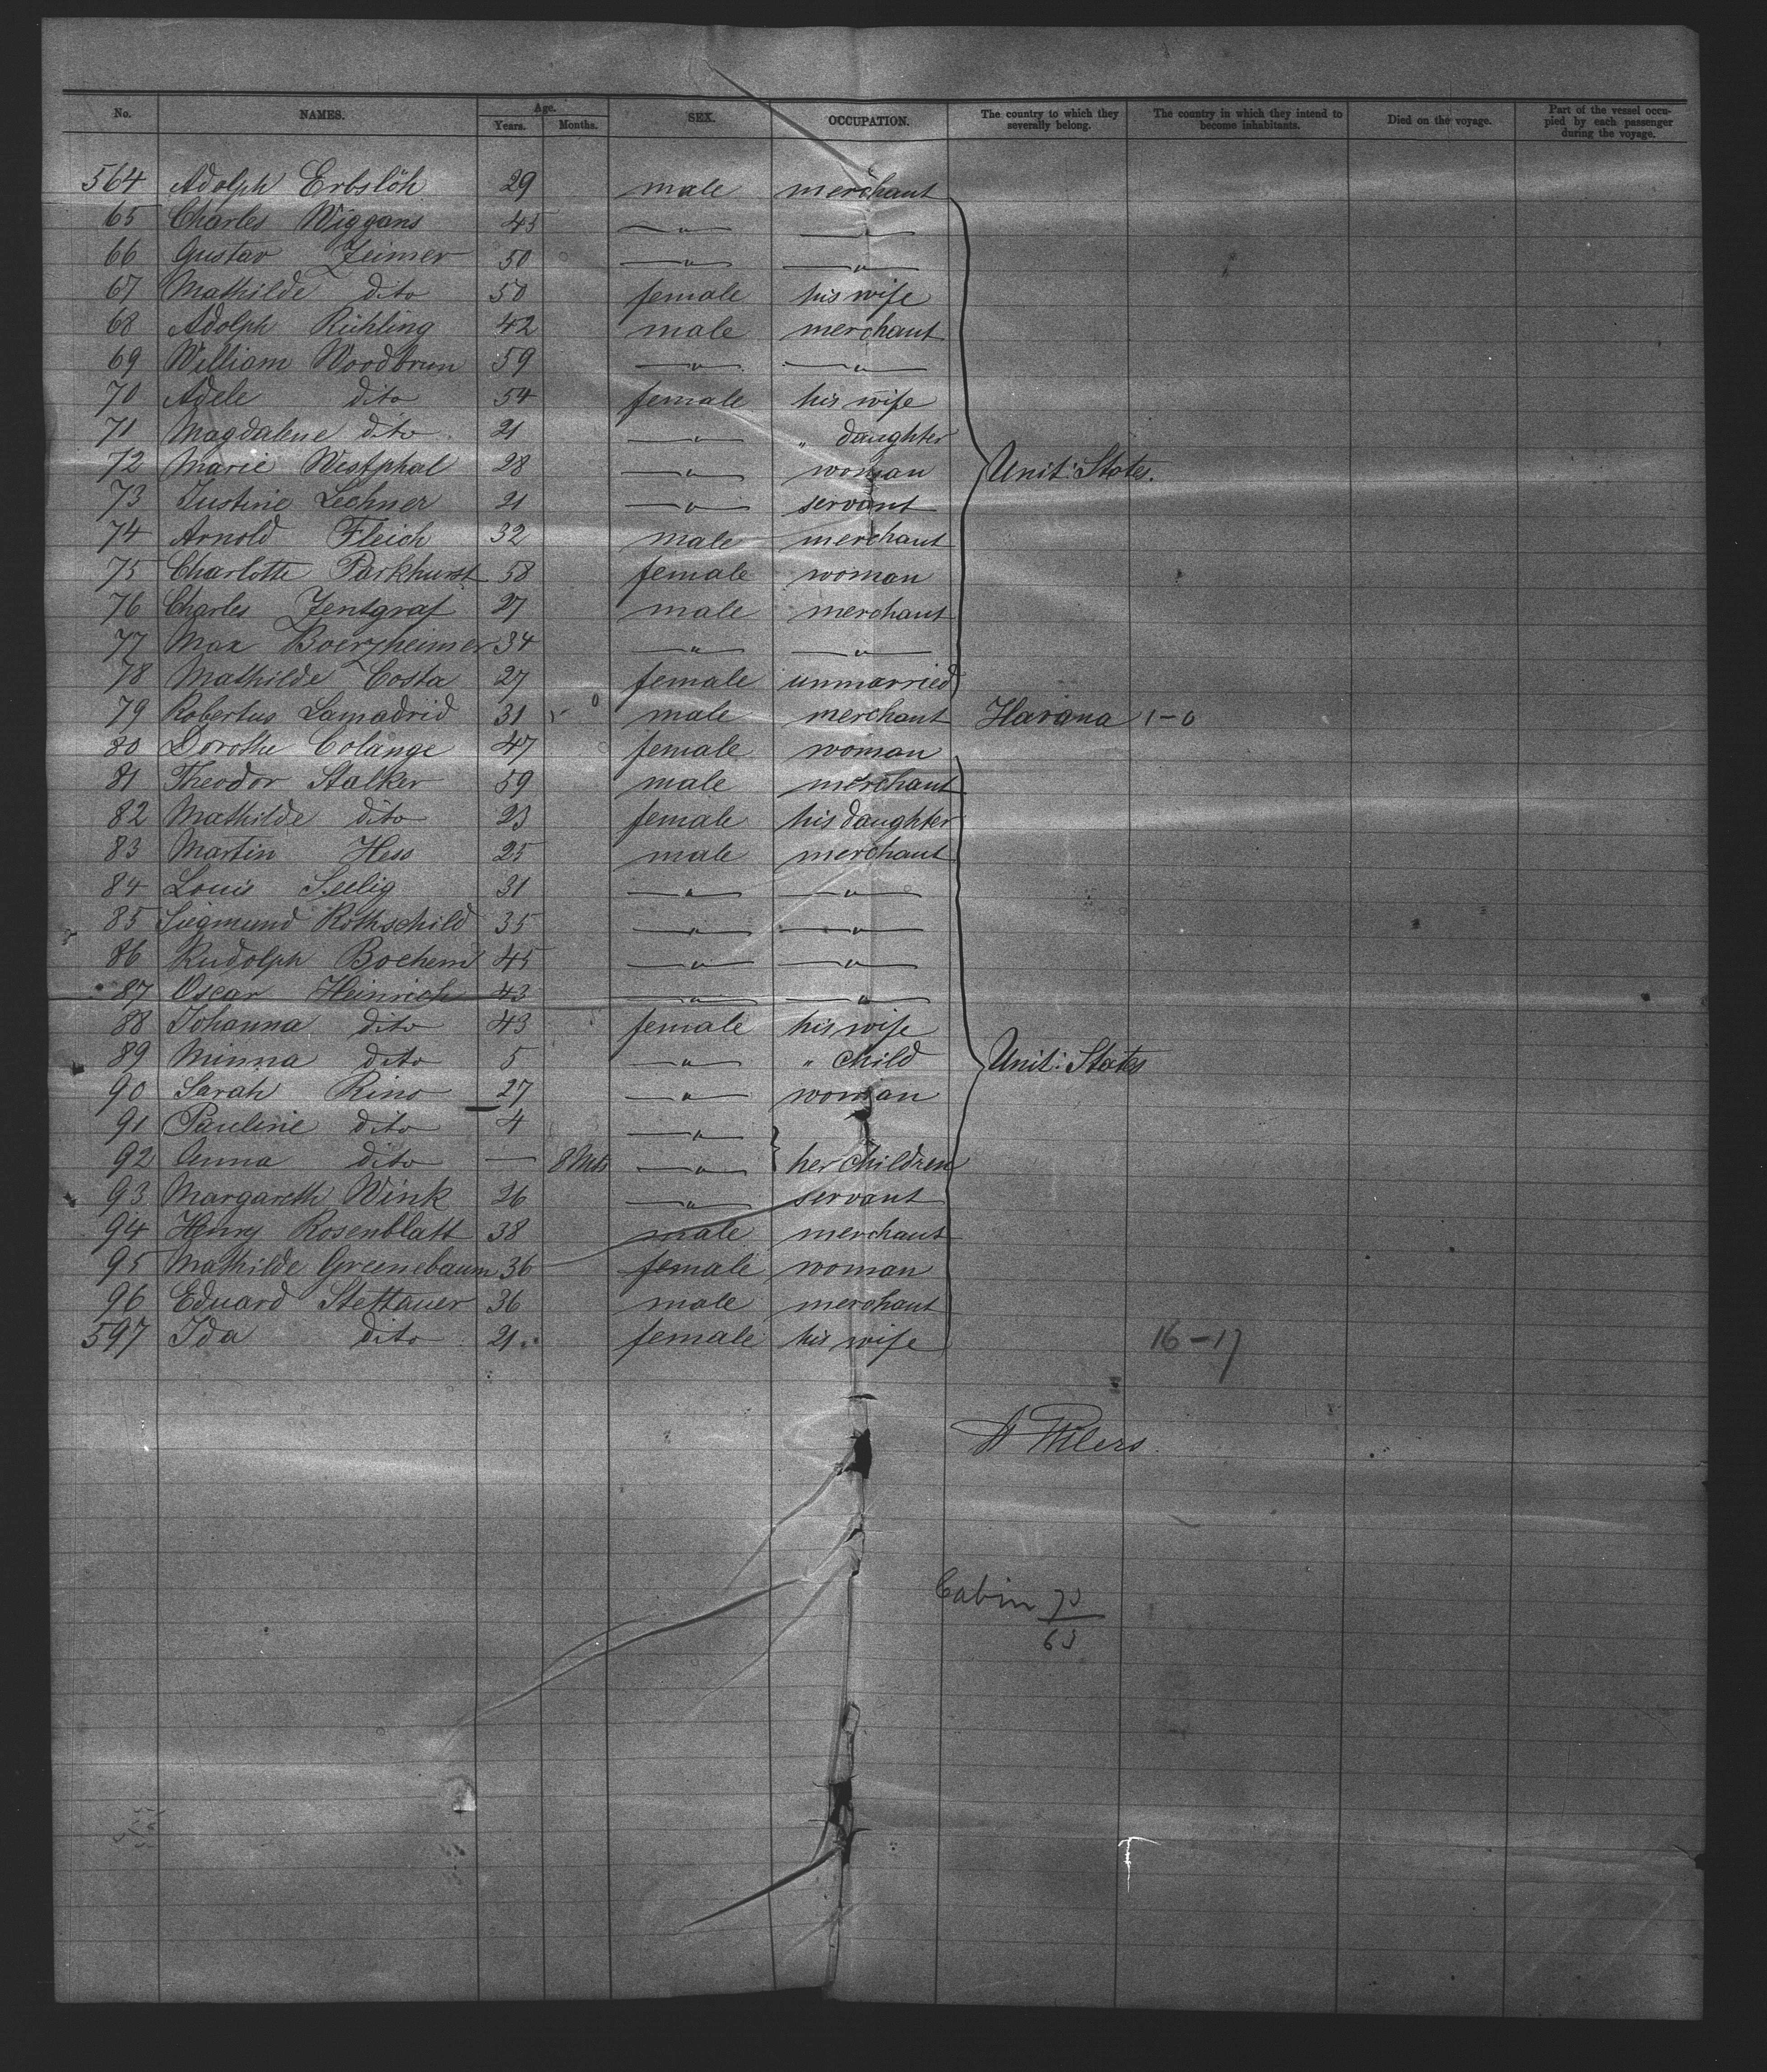 No. NAMES. Age. Years. Months. SEX. OCCUPATION. The country to which they severally belong. The country in which they intend to become inhabitants. Died on the voyage. Part of the vessel occupied by each passenger during the voyage.
564 Adolph Erbslöh 29 male merchant
65 Charles Wiggans 45 " "
66 Gustav Zeimer 50 " "
67 Mathilde dito 50 female his wife
68 Adolph Rühling 42 male merchant
69 William Woodbrun 59 " "
70 Adele dito 54 female his wife
71 Magdalene dito 21 " " daughter
72 Marie Westphal 28 " woman Unit: States.
73 Justine Lechner 21 " servant
74 Arnold Fleich 32 male merchant
75 Charlotte Parkhurst 58 female woman
76 Charles Zentgraf 27 male merchant
77 Max Boerzheimer 34 " "
78 Mathilde Costa 27 female unmarried
79 Robertus Lamadrid 31 male merchant Havana 1-0
80 Dorothe Colange 47 female woman
81 Theodor Stalker 59 male merchant
82 Mathilde dito 23 female his daughter
83 Martin Hess 25 male merchant
84 Louis Seelig 31 " "
85 Siegmund Rothschild 35 " "
86 Rudolph Bochem 45 " "
87 Oscar Heinrich 43 " "
88 Johanna dito 43 female his wife
89 Minna dito 5 " " child Unit: States
90 Sarah Rino 27 " woman
91 Pauline dito 4 "
92 Anna dito — 8 Mts " her children
93 Margareth Wink 26 " servant
94 Henry Rosenblatt 38 male merchant
95 Mathilde Greenebaum 36 female woman
96 Eduard Stettauer 36 male merchant
597 Ida dito 21 female his wife 16-17
Cabin 70
63